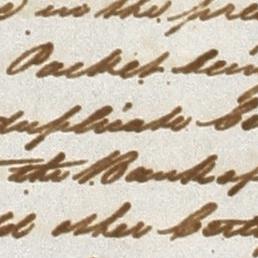 in the pre
Packet bein
duplicate Co
the Bank of
ld other Cert